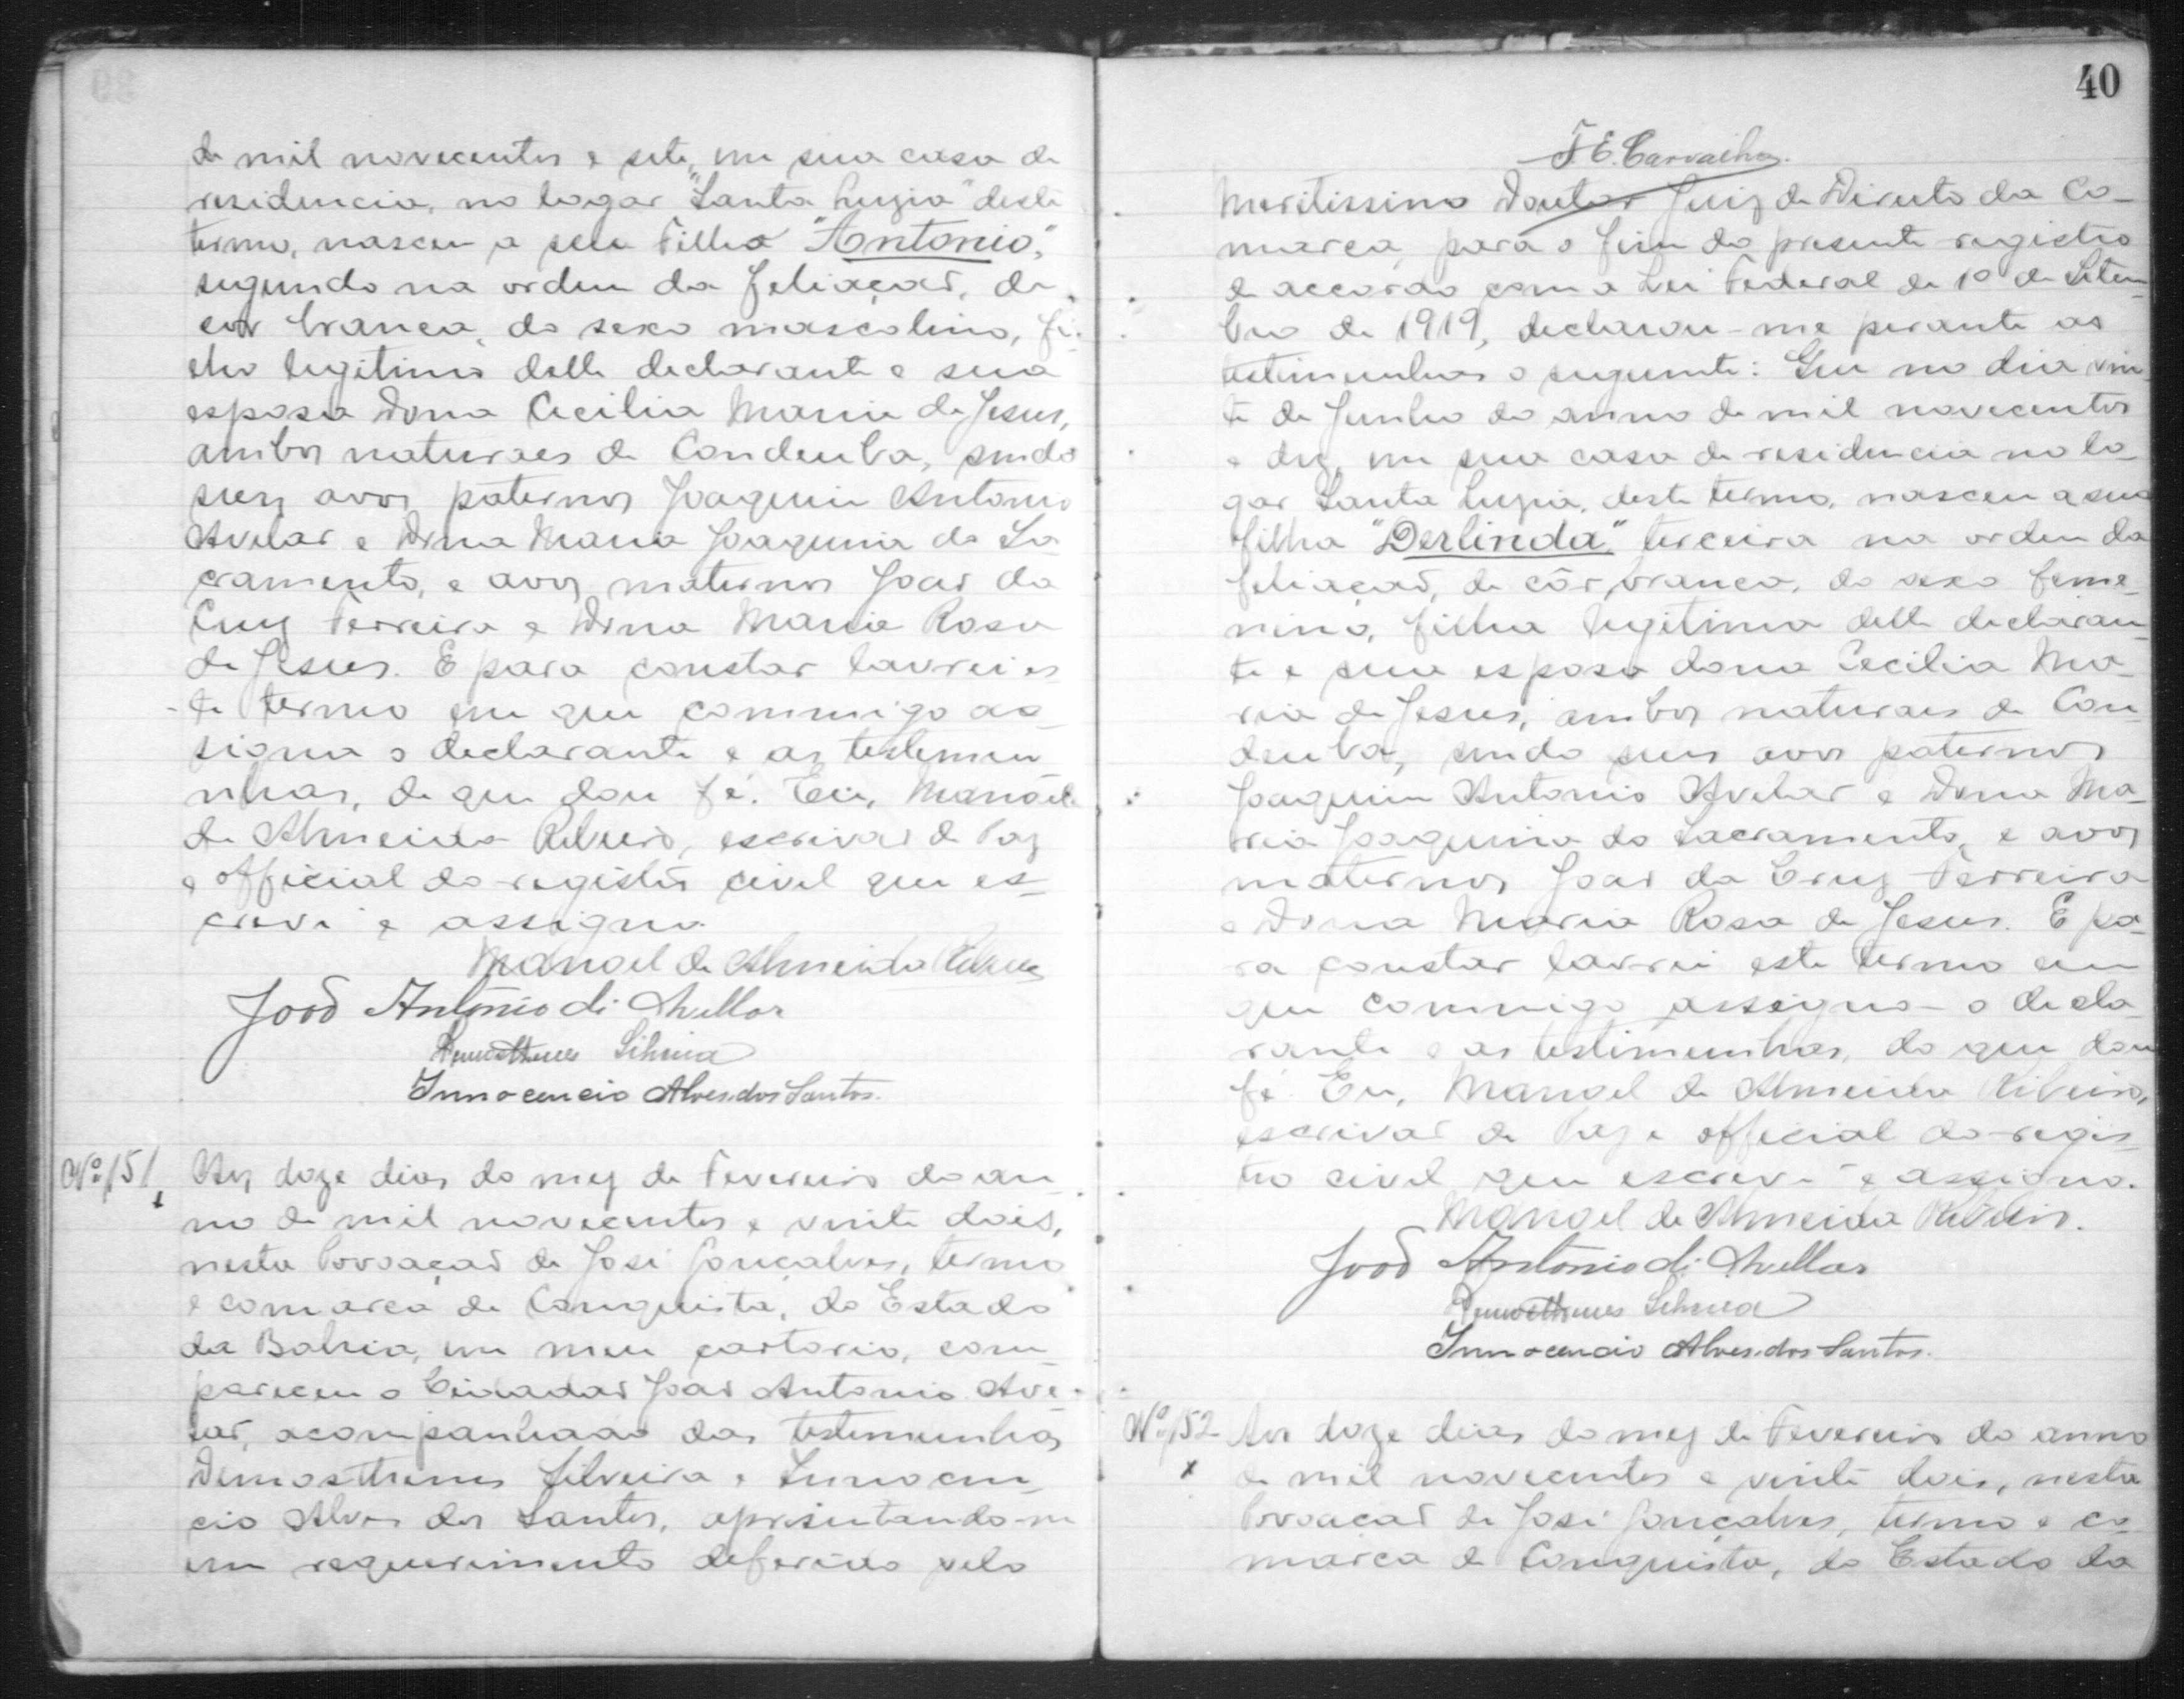 de mil novecentos e sete, em sua casa de
residencia, no logar "Santa Luzia" deste
termo, nasceu a seu Filho "Antonio",
segundo na ordem da feliaçaõ, de
cor branca, do sexo mascolino, fi-
lho legitimo delle declarante e sua
esposa Dona Cecilia Maria de Jesus,
ambos naturaes de Condeuba, sendo
seus avos paternos Joaquim Antonio
Avelar e Dona Maria Joaquina do Sa
cramento, e avos maternos Joaõ da
Cruz Ferreira e Dona Maria Rosa
de Jesus. E para constar lavrei es
te termo em que commigo as
signa o declarante e as testemu
nhas, de que dou fé. Eu, Manoel
de Almeida Ribeiro, escrivaõ de Paz
e official do registro civil que es-
crevi e assigno.
Manoel de Almeida Ribeiro
Joaõ Antonio di Avellar
Demosthenes Silveira
Innocencio Alves dos Santos.
Nº 151
Aos doze dias do mez de Fevereiro do an-
no de mil novecentos e vinte dois,
nesta Povoaçaõ de José Gonçalves, termo
e comarca de Conquista, do Estado
da Bahia, em meu cartorio, com-
pareceu o Cidadaõ Joaõ Antonio Ave-
lar, acompanhado das testemunhas
Demosthenes Silveira e Innocen-
cio Alves dos Santos, apresentando-me
um requerimento deferido pelo
40
F. E. Carvalho.
Meritissimo Doutor Juiz de Direito da Co-
marca, para o fim do presente registro
de accordo com a Lei Federal de 1º de Setem-
bro de 1919, declarou-me perante as
testimunhas o seguinte: Que no dia vin-
te de Junho do anno de mil novecentos
e dez, em sua casa de residencia no lo-
gar Santa Luzia, deste termo, nasceu a sua
filha "Derlinda," terceira na ordem da
feliaçaõ, de côr branca, do sexo feme-
nino, filha legitima delle declaran-
te e sua esposa dona Cecilia Ma-
ria de Jesus, ambos naturaes de Con-
deuba, sendo seus avos paternos
Joaquim Antonio Avelar e Dona Ma-
ria Joaquina do Sacramento, e avos
maternos Joaõ da Cruz Ferreira
e Dona Maria Rosa de Jesus. E pa-
ra constar lavrei este termo em
que commigo assigna o decla-
rante e as testimunhas, do que dou
fé. Eu, Manoel de Almeida Ribeiro,
escrivaõ de Paz e official do regis-
tro civil que escrevi e assigno.
Manoel de Almeida Ribeiro.
Joaõ Antonio di Avellar
Demosthenes Silveira
Innocencio Alves dos Santos.
Nº 152
Aos doze dias do mez de Fevereiro do anno
de mil novecentos e vinte dois, nesta
Povoaçaõ de José Gonçalves, termo e co-
marca de Conquista, do Estado da